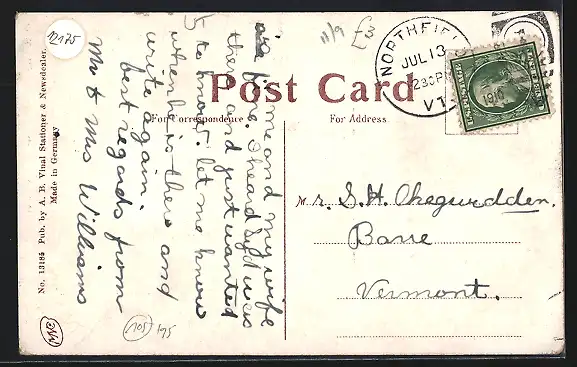 12175
11/9 £3
NORTHFIELD
JUL 13
230PM
1910
VT.
Post Card
For Correspondence
For Address
No. 13185 Pub. by A. B. Vinal Stationer & Newsdealer.
Made in Germany
me and my wife
are fine. I heard Syd was
there and just wanted
to know. let me know
when he is there and
write again.
best regards from
Mr & Mrs Williams
Mr. S. H.
Barre
Vermont.
105 195